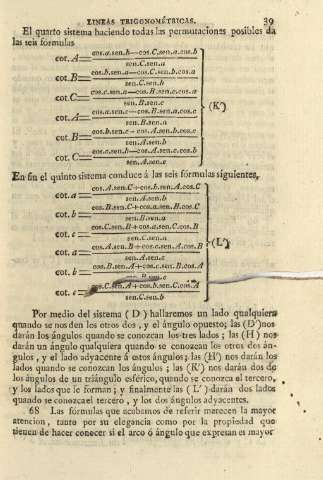 LINEAS TRIGONOMÉTRICAS. 39
El quarto sistema haciendo todas las permutaciones posibles da
las seis formulas
cot. A = cos.a.sen.b—cos.C.sen.a.cos.b / sen.C.sen.a
cot. B = cos.b.sen.a—cos.C.sen.b.cos.a / sen.C.sen.b
cot C = cos.c.sen.a—cos.B.sen.c.cos.a / sen.B.sen.c
cot. A = cos.a.sen.c—cos.B.sen.a.cos.c / sen.B.sen.a
cot. B = cos.b.sen.c—cos.A.sen.b.cos.c / sen.A.sen.b
cot. C = cos.c.sen.b—cos.A.sen.c.cos.b / sen.A.sen.c
(K')
En fin el quinto sistema conduce á las seis formulas siguientes,
cot. a = cos.A.sen.C+cos.b.sen.A.cos.C / sen.A.sen.b
cot. b = cos.B.sen.C+cos.a.sen.B.cos.C / sen.B.sen.a
cot. c = cos.C.sen.B+cos.a.sen.C.cos.B / sen.C.sen.a
cot. a = cos.A.sen.B+cos.c.sen.A.cos.B / sen.A.sen.c
cot. b = cos.B.sen.A+cos.c.sen.B.cos.A / sen.B.sen.c
cot. c = cos.C.sen.A+cos.b.sen.C.cos.A / sen.C.sen.b
(L')
Por medio del sistema ( D ) hallaremos un lado qualquiera
quando se nos den los otros dos , y el ángulo opuesto; las (D') nos
darán los ángulos quando se conozcan los tres lados ; las (H) nos
darán un ángulo qualquiera quando se conozcan los otros dos án-
gulos , y el lado adyacente á estos ángulos; las (H') nos darán los
lados quando se conozcan los ángulos ; las (K') nos darán dos de
los ángulos de un triángulo esférico, quando se conozca el tercero,
y los lados que le forman ; y finalmente las ( L' ) darán dos lados
quando se conozca el tercero , y los dos ángulos adyacentes.
68 Las fórmulas que acabamos de referir merecen la mayor
atencion , tanto por su elegancia como por la propiedad que
tienen de hacer conocer si el arco ó ángulo que expresan es mayor